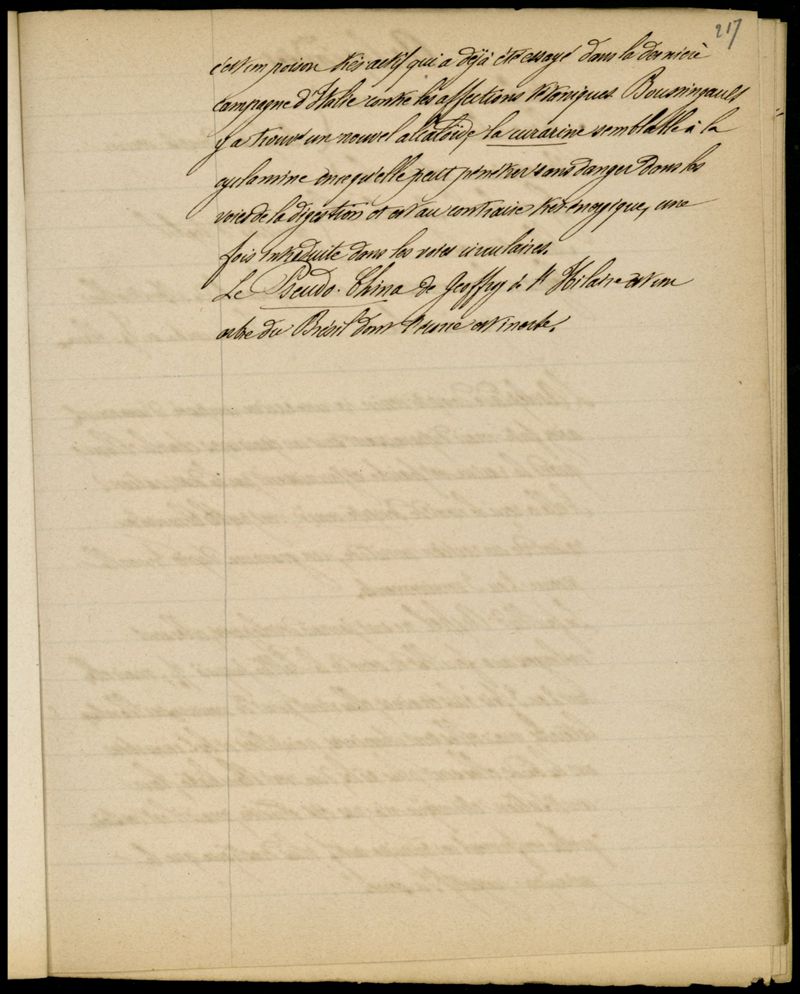 217
c'est un poison très actif qui a déjà été essayé dans la dernière
campagne d'Italie contre les affections tétaniques. Boussingault
y a trouvé un nouvel alcaloïde la curarine semblable à la
en ce qu'elle peut pénétrer sans danger dans les
voies de la digestion et est au contraire très énergique, une
fois introduite dans les voies circulaires.
Le Pseudo-China de Geoffroy de St Hilaire est un
arbre du Brésil dont l'écorce est inerte.